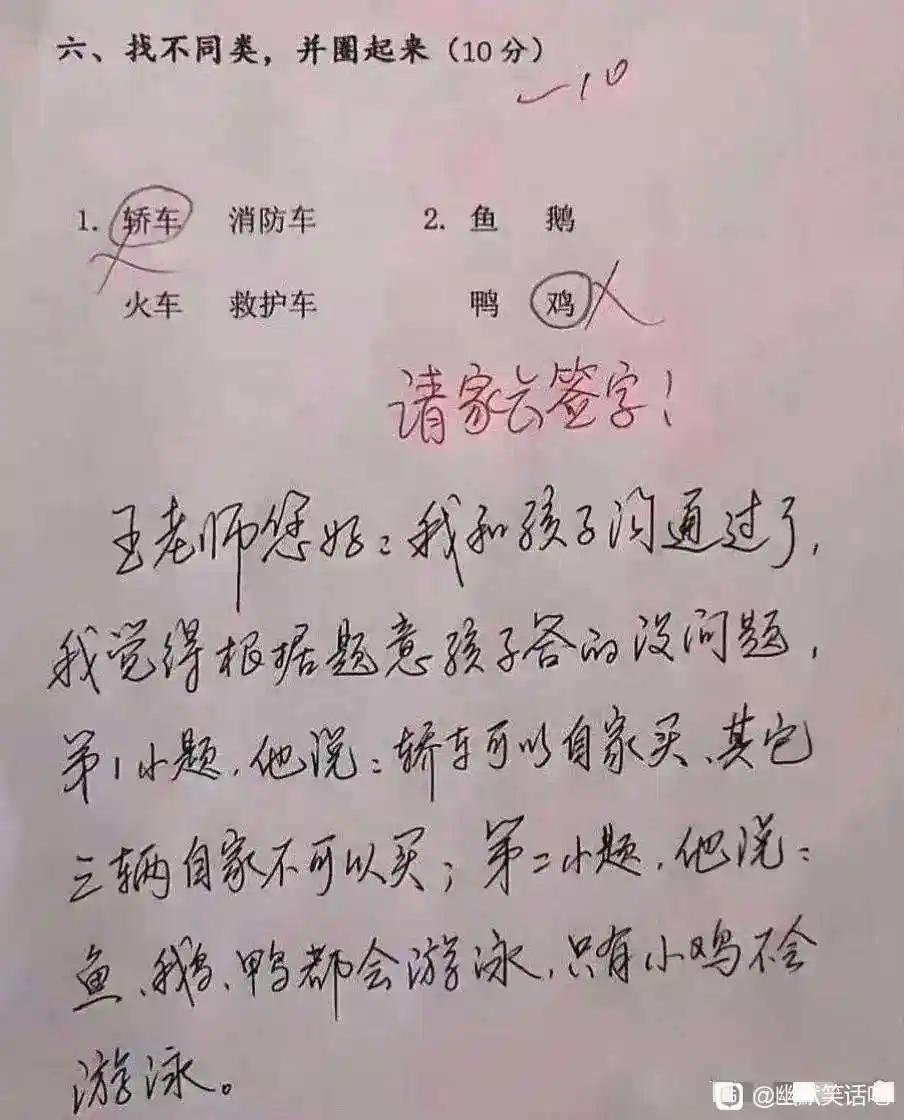 六、找不同类，并圈起来（10 分）
-10
1. 轿车 消防车 2. 鱼 鹅
火车 救护车 鸭 鸡
请家长签字！
王老师您好：我和孩子沟通过了，
我觉得根据题意孩子答的没问题，
第1小题，他说：轿车可以自家买、其它
三辆自家不可以买；第二小题，他说：
鱼、鹅、鸭都会游泳，只有小鸡不会
游泳。
@幽默笑话吧